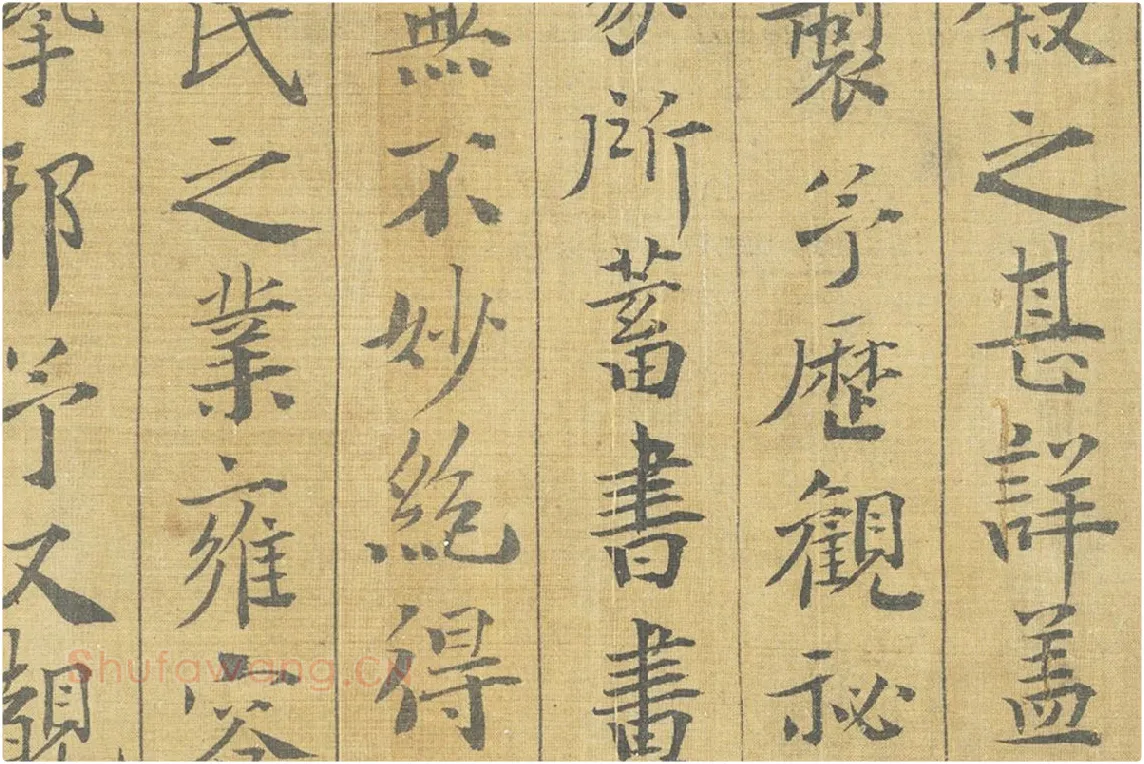 叙之甚詳盖
製予歷觀祕
所蓄書畫
無不妙絶得
氏之業雍容
予又觀
Shufawang.CN